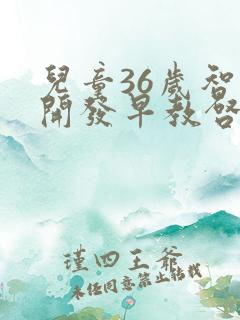 兒童36歲智
開發早教啓
瑾四王爺
未經同意禁止轉載